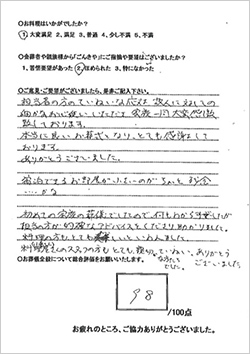 ○お料理はいかがでしたか?
1 大変満足 2. 満足 3. 普通 4. 少し不満 5. 不満
○会葬者や親族様から「ごんきや」にご指摘や要望はございましたか?
1. 苦情要望があった 2. ほめられた 3. 特になかった
○ご意見・ご要望がございましたら、是非ご記入下さい。
担当者の方のていねいな応対、故人に対しての
家族一同大変感激
致しております。
本当に良いお葬式となり、とても感謝をして
おります。
ありがとうございました。
宿泊できるお部屋が
…かな
初めての家族の葬儀でしたので、何もわかりませんでしたが
担当の方が的確なアドバイスをくださり助かりました。
お料理の方もとても良いといわれました。
スタッフの方もとても親切でていねい、ありがとう
ございました。
○お葬儀全般について総合評価をお願いいたします。
98
/100点
お疲れのところ、ご協力ありがとうございました。